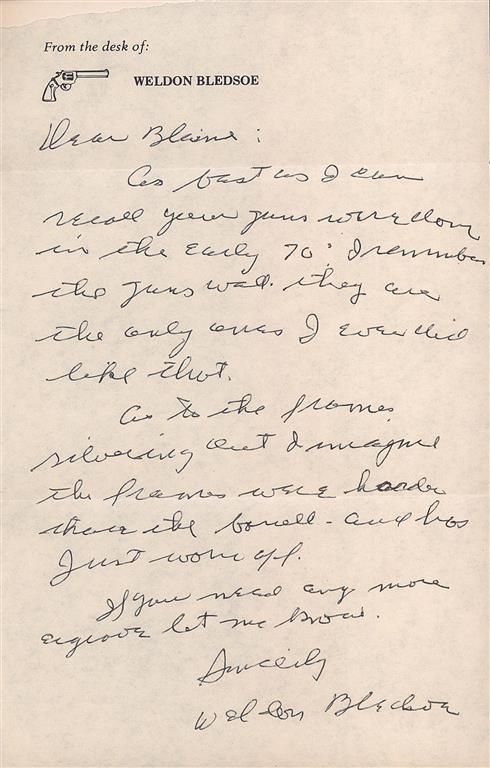 From the desk of:
WELDON BLEDSOE
Dear Blaine:
As best as I can
recall your guns were done
in the early 70's I remember
the guns well. they are
the only ones I ever did
like that.
As to the frames
silvering out I imagine
the frames were harder
than the barrell - and has
Just worn off.
If you need any more
let me know.
Sincerely
Weldon Bledsoe